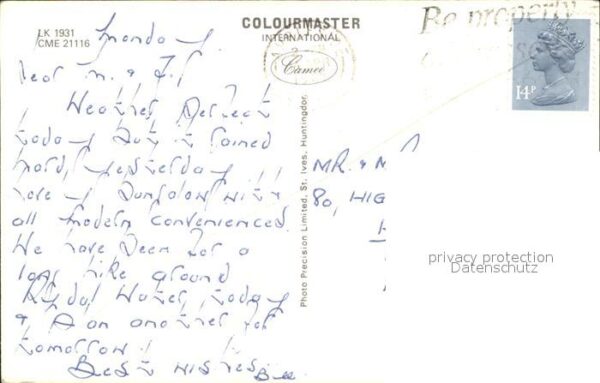 LK 1931
CME 21116
COLOURMASTER
INTERNATIONAL
Cameo
Be properly
14P
Monday.
Dear M. & J.
Weather
today but it rained
hard yesterday
lovely bungalow with
all modern convenienced.
We have been for a
long hike around
Rydal Water, today
& on another for
tomorrow!
Best wishes
Photo Precision Limited, St. Ives, Huntingdon.
MR. & M
80, HIG
privacy protection
Datenschutz